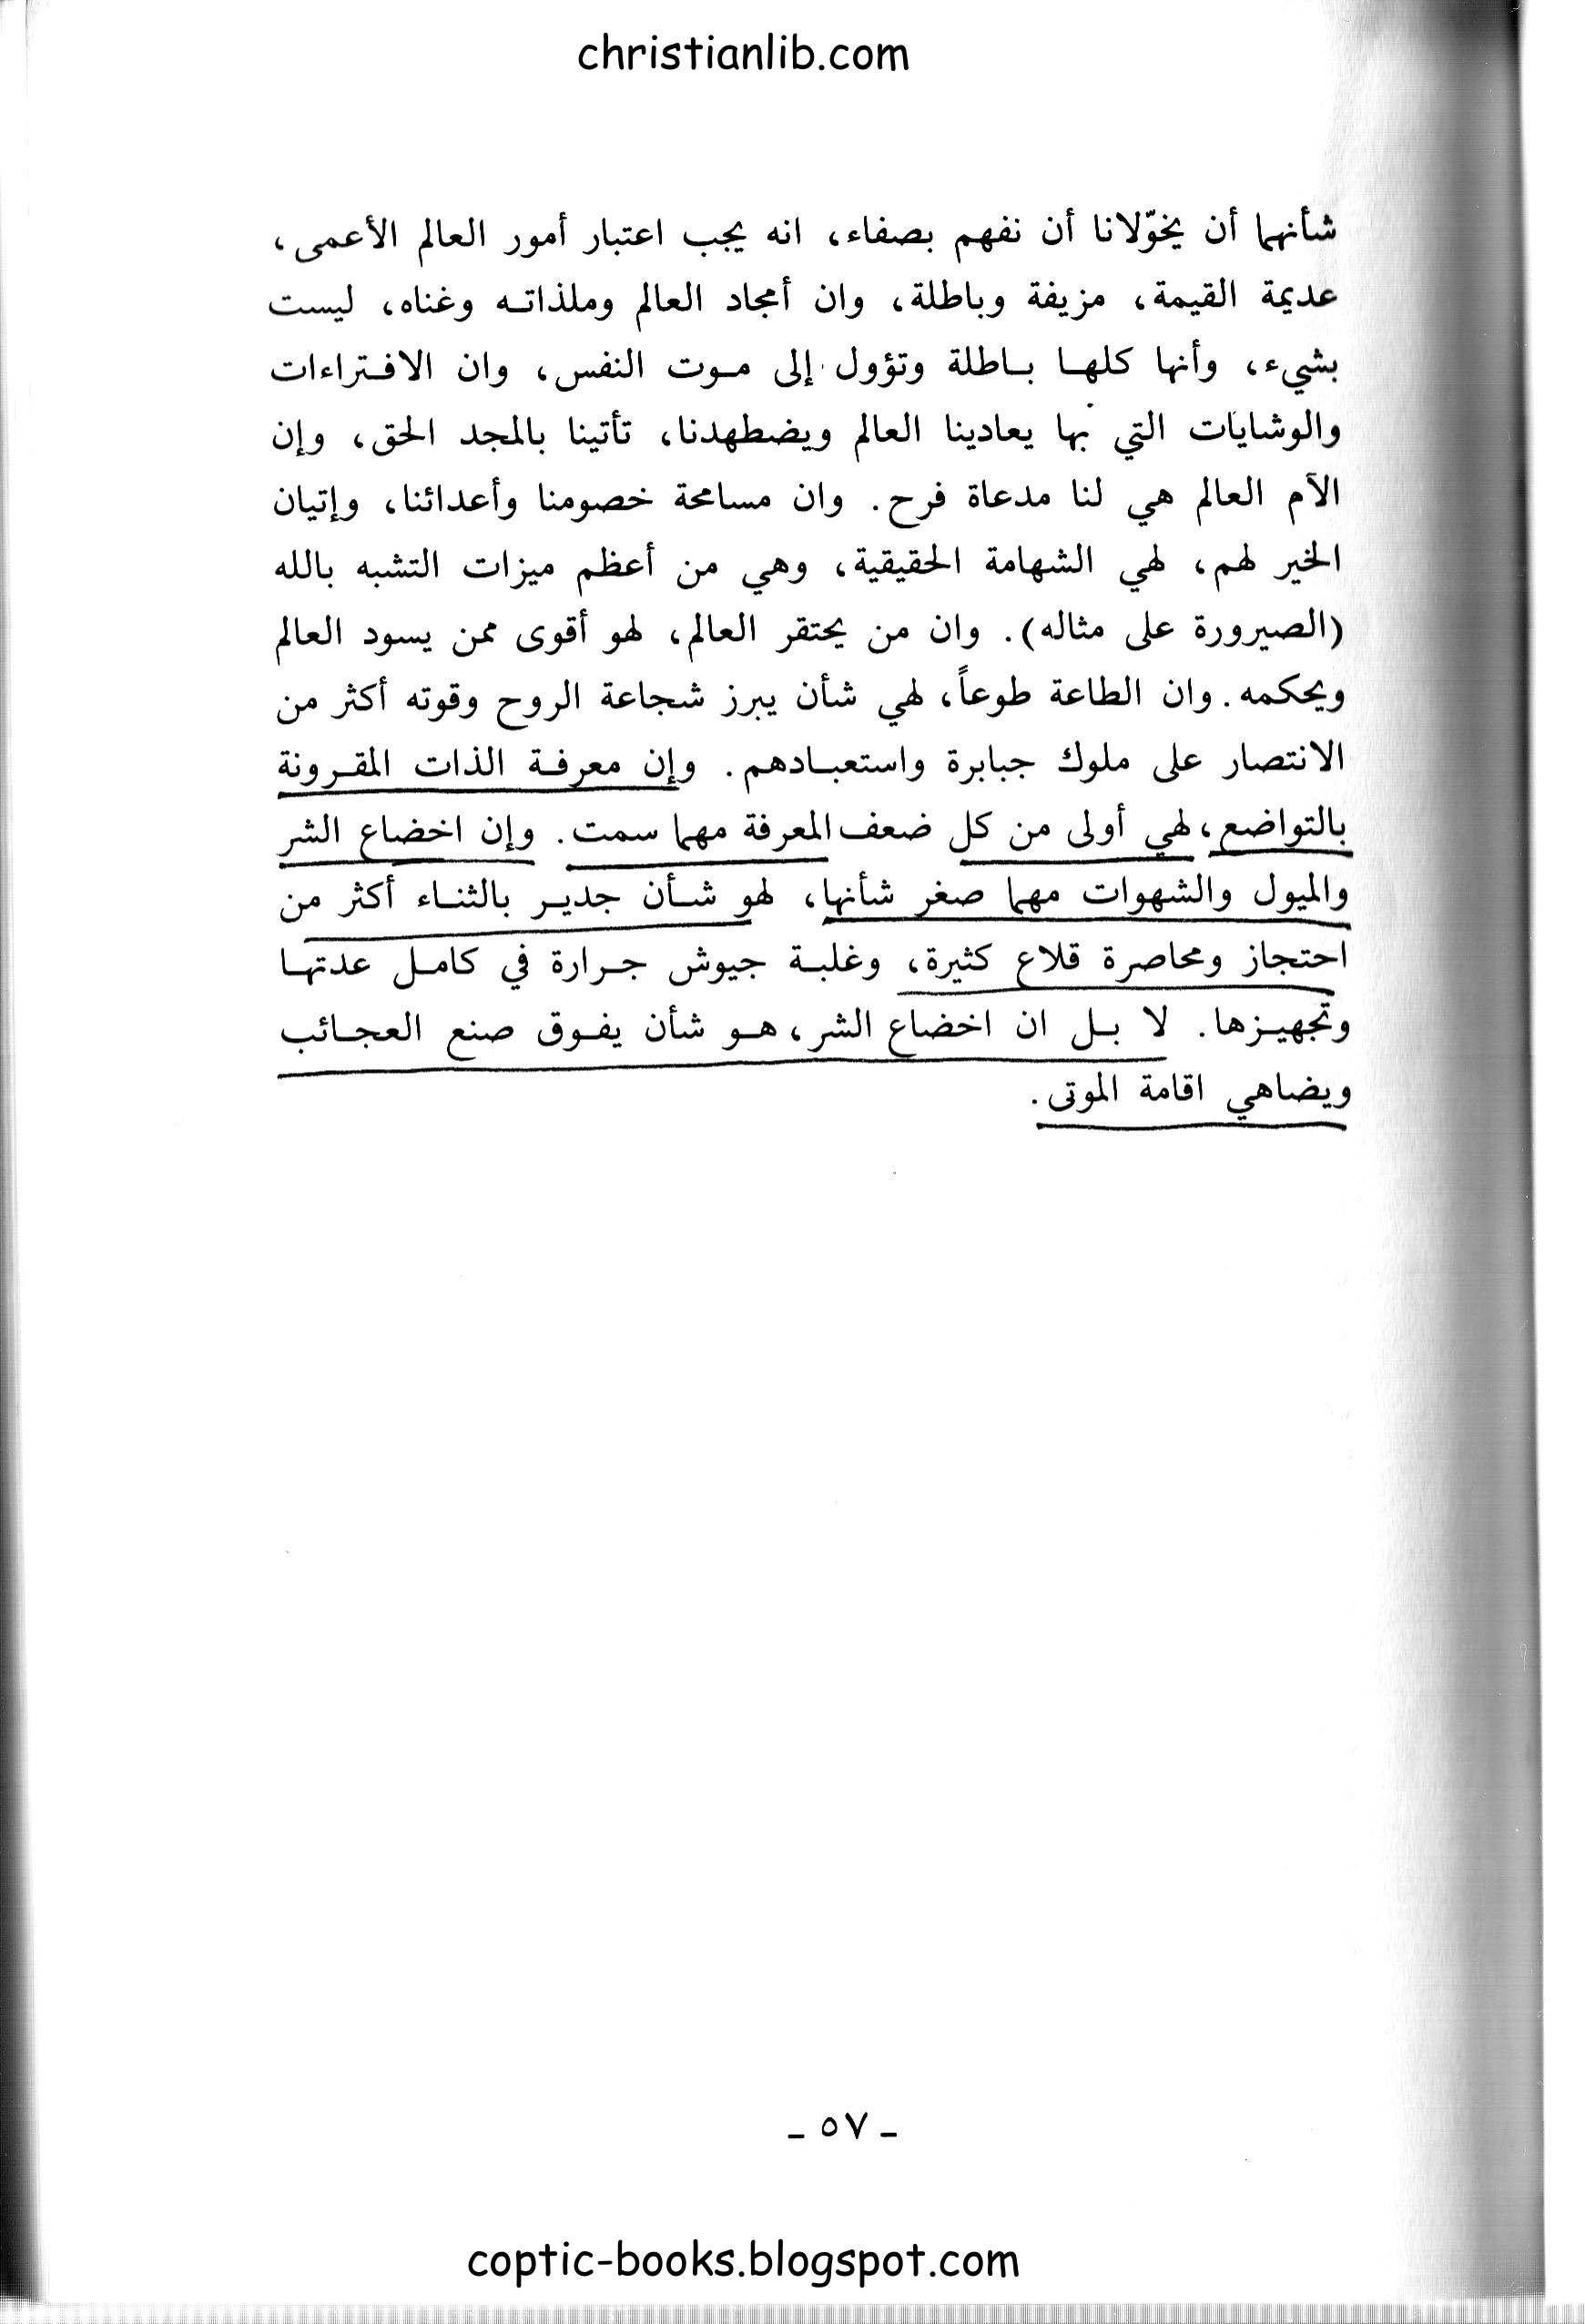 christianlib.com
شأنهما أن يخوّلانا أن نفهم بصفاء، انه يجب اعتبار أمور العالم الأعمى،
عديمة القيمة، مزيفة وباطلة، وان أمجاد العالم وملذاته وغناه، ليست
بشيء، وأنها كلها باطلة وتؤول إلى موت النفس، وان الافتراءات
والوشايات التي بها يعادينا العالم ويضطهدنا، تأتينا بالمجد الحق، وإن
الآم العالم هي لنا مدعاة فرح. وان مسامحة خصومنا وأعدائنا، وإتيان
الخير لهم، لهي الشهامة الحقيقية، وهي من أعظم ميزات التشبه بالله
(الصيرورة على مثاله). وان من يحتقر العالم، لهو أقوى ممن يسود العالم
ويحكمه. وان الطاعة طوعاً، لهي شأن يبرز شجاعة الروح وقوته أكثر من
الانتصار على ملوك جبابرة واستعبادهم. وإن معرفة الذات المقرونة
بالتواضع، لهي أولى من كل ضعف المعرفة مهما سمت. وإن اخضاع الشر
والميول والشهوات مهما صغر شأنها، لهو شأن جدير بالثناء أكثر من
احتجاز ومحاصرة قلاع كثيرة، وغلبة جيوش جرارة في كامل عدتها
وتجهيزها. لا بل ان اخضاع الشر، هو شأن يفوق صنع العجائب
ويضاهي اقامة الموتى.
- ٥٧ -
coptic-books.blogspot.com